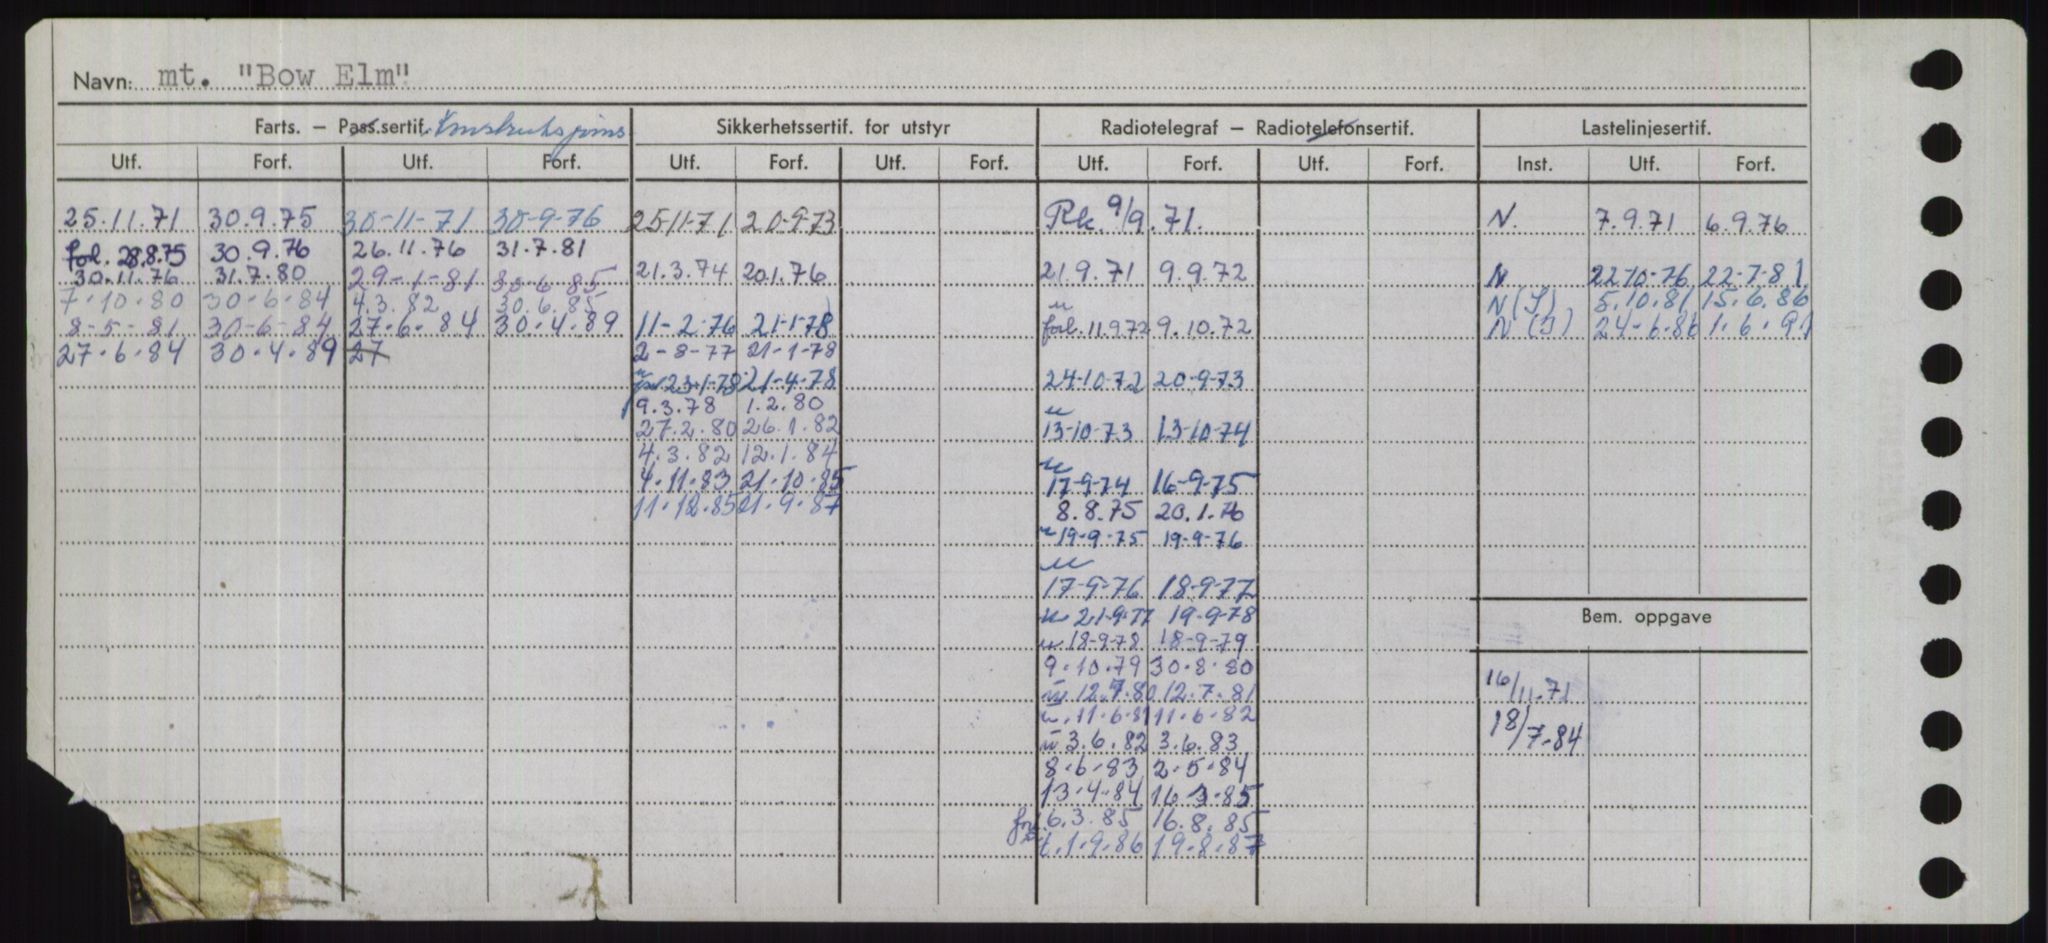 Navn: mt. "Bow Elm"
Farts. – Pass.sertif. Konstruksjons Sikkerhetssertif. for utstyr Radiotelegraf – Radiotelefonsertif. Lastelinjesertif.
Utf. Forf. Utf. Forf. Utf. Forf. Utf. Forf. Utf. Forf. Utf. Forf. Inst. Utf. Forf.
25.11.71 30.9.75 30-11-71 30-9-76 25-11-71 20-9-73 Rk. 9/9.71. N. 7.9.71 6.9.76
forl. 28.8.75 30.9.76 26.11.76 31.7.81
30.11.76 31.7.80 29-1-81 30-6-85 21.3.74 20.1.76 21.9.71 9.9.72 N 22-10-76 22-7-81
7.10.80 30.6.84 4.3.82 30.6.85 N(I) 5.10.81 15.6.86
8-5-81 30-6-84 27.6.84 30.4.89 11-2-76 21-1-78 forl. 11.9.72 9.10.72 N (I) 24-6-86 1.6.91
27.6.84 30.4.89 27 2-8-77 21-1-78
23-1-78 21-4-78 24-10-72 20-9-73
9.3.78 1.2.80
27.2.80 26.1.82 13-10-73 13-10-74
4.3.82 12.1.84
4.11.83 21.10.85 17-9-74 16-9-75
11.12.85 21.9.87 8.8.75 20.1.76
19-9-75 19-9-76
17-9-76 18-9-77
21-9-77 19-9-78 Bem. oppgave
18-9-78 18-9-79
9.10.79 30.8.80
12.7.80 12.7.81 16/11.71
11.6.81 11.6.82
3.6.82 3.6.83 18/7-84
8.6.83 2.5.84
13.4.84 16.3.85
6.3.85 16.8.85
1.9.86 19.8.87